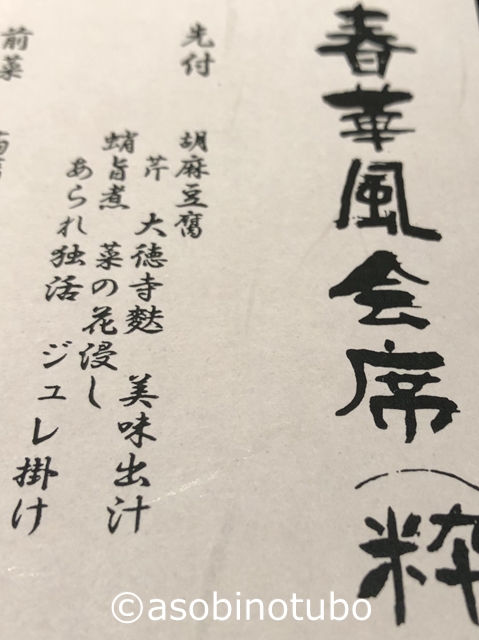 春華風会席（粋
先付
胡麻豆腐
芹　大徳寺麩　美味出汁
蛸旨煮　菜の花浸し
あられ独活　ジュレ掛け
前菜
©asobinotubo